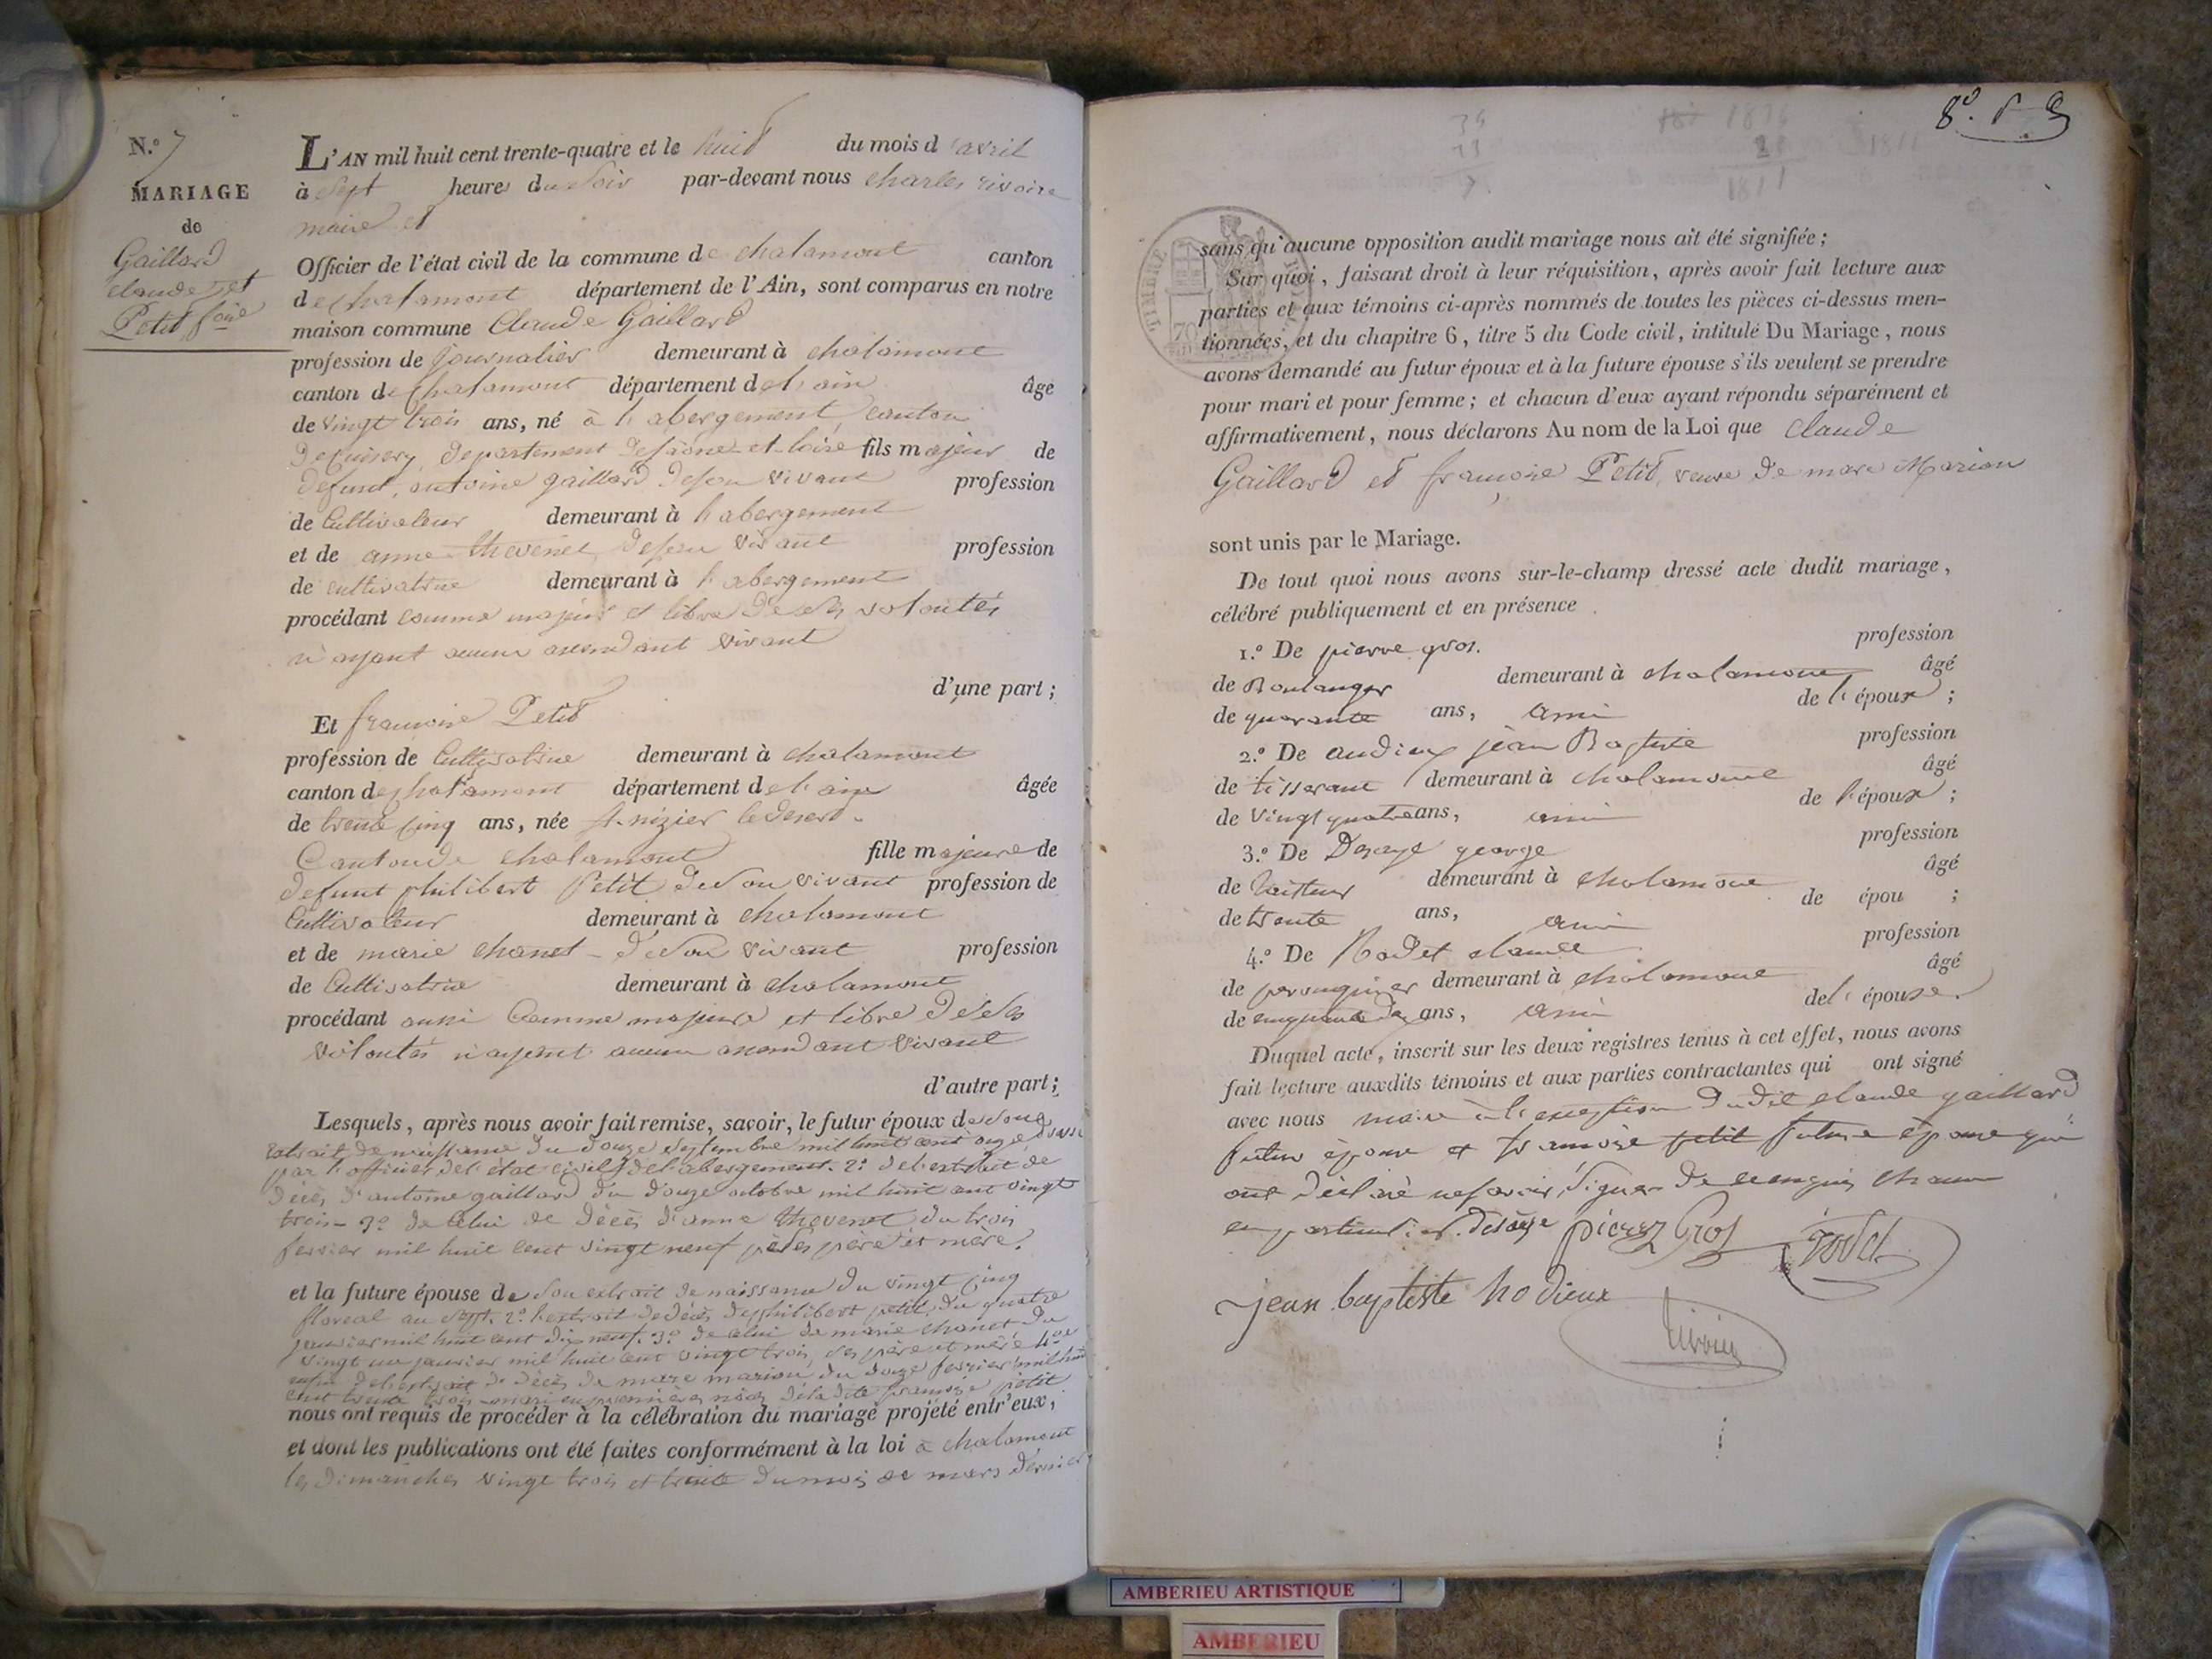 N.º 7
MARIAGE
de
Gaillard
claude et
Petit foise
L'AN mil huit cent trente-quatre et le huit du mois d'avril
à sept heures du soir par-devant nous charles rivoire
maire et
Officier de l'état civil de la commune de chalamont canton
de chalamont département de l'Ain, sont comparus en notre
maison commune Claude Gaillard
profession de journalier demeurant à chalamont
canton de chalamont département de l'ain âgé
de vingt trois ans, né à l'abergement, canton
de Cuisery, departement de saône et loire fils majeur de
defunt, antoine gaillard de son vivant profession
de Cultivateur demeurant à l'abergement
et de anne thevenet, de son vivant profession
de cultivatrice demeurant à l'abergement
procédant comme majeur et libre de ses volontés
n'ayant aucun ascendant vivant
d'une part ;
Et françoise Petit
profession de Cultivatrice demeurant à chalamont
canton de chalamont département de l'ain âgée
de trente cinq ans, née st. nizier le desert.
Canton de chalamont fille majeure de
defunt philibert Petit de son vivant profession de
Cultivateur demeurant à chalamont
et de marie chanet - de son vivant profession
de Cultivatrice demeurant à chalamont
procédant aussi Comme majeure et libre de ses
volontés n'ayant aucun ascendant vivant
d'autre part ;
Lesquels, après nous avoir fait remise, savoir, le futur époux de son
extrait de naissance du douze septembre mil huit cent onze
par l'officier de l'état civil de l'abergement. 2º de l'extrait de
décès d'antoine gaillard du douze octobre mil huit cent vingt
trois - 3º de celui de décès d'anne thevenet du trois
fevrier mil huit cent vingt neuf ses père et mère.
et la future épouse de son extrait de naissance du vingt cinq
floreal an sept. 2º l'extrait de décès de philibert petit du quatre
janvier mil huit cent dix neuf. 3º de celui de marie chanet du
vingt un janvier mil huit cent vingt trois, ses père et mère 4º
enfin de l'extrait de décès de marc marion du douze fevrier mil huit
cent trente trois mari en premières noces de la dite françoise petit
nous ont requis de procéder à la célébration du mariage projeté entr'eux,
et dont les publications ont été faites conformément à la loi à chalamont
les dimanches vingt trois et trente du mois de mars dernier
8º.
sans qu'aucune opposition audit mariage nous ait été signifiée ;
Sur quoi, faisant droit à leur réquisition, après avoir fait lecture aux
parties et aux témoins ci-après nommés de toutes les pièces ci-dessus men-
tionnées, et du chapitre 6, titre 5 du Code civil, intitulé Du Mariage, nous
avons demandé au futur époux et à la future épouse s'ils veulent se prendre
pour mari et pour femme ; et chacun d'eux ayant répondu séparément et
affirmativement, nous déclarons Au nom de la Loi que claude
Gaillard et françoise Petit, veuve de marc Marion
sont unis par le Mariage.
De tout quoi nous avons sur-le-champ dressé acte dudit mariage,
célébré publiquement et en présence
1.º De pierre gros. profession
de Boulanger demeurant à chalamont âgé
de quarante ans, ami de l'époux ;
2.º De audieux jean Baptiste profession
de tisserant demeurant à chalamont âgé
de vingt quatre ans, ami de l'époux ;
3.º De Desaye george profession
de demeurant à chalamont âgé
de trente ans, ami de épou ;
4.º De Rodet claude profession
de perruquier demeurant à chalamont âgé
de cinquante ans, ami de l'épouse.
Duquel acte, inscrit sur les deux registres tenus à cet effet, nous avons
fait lecture auxdits témoins et aux parties contractantes qui ont signé
avec nous maire à l'exception dudit claude gaillard
futur époux et françoise petit future épouse qui
ont déclaré ne savoir signer de ce enquis chacun
en particulier. desaye pierre Gros Rodet
jean baptiste hodieux
Rivoire
TIMBRE
70
AMBERIEU ARTISTIQUE
AMBERIEU